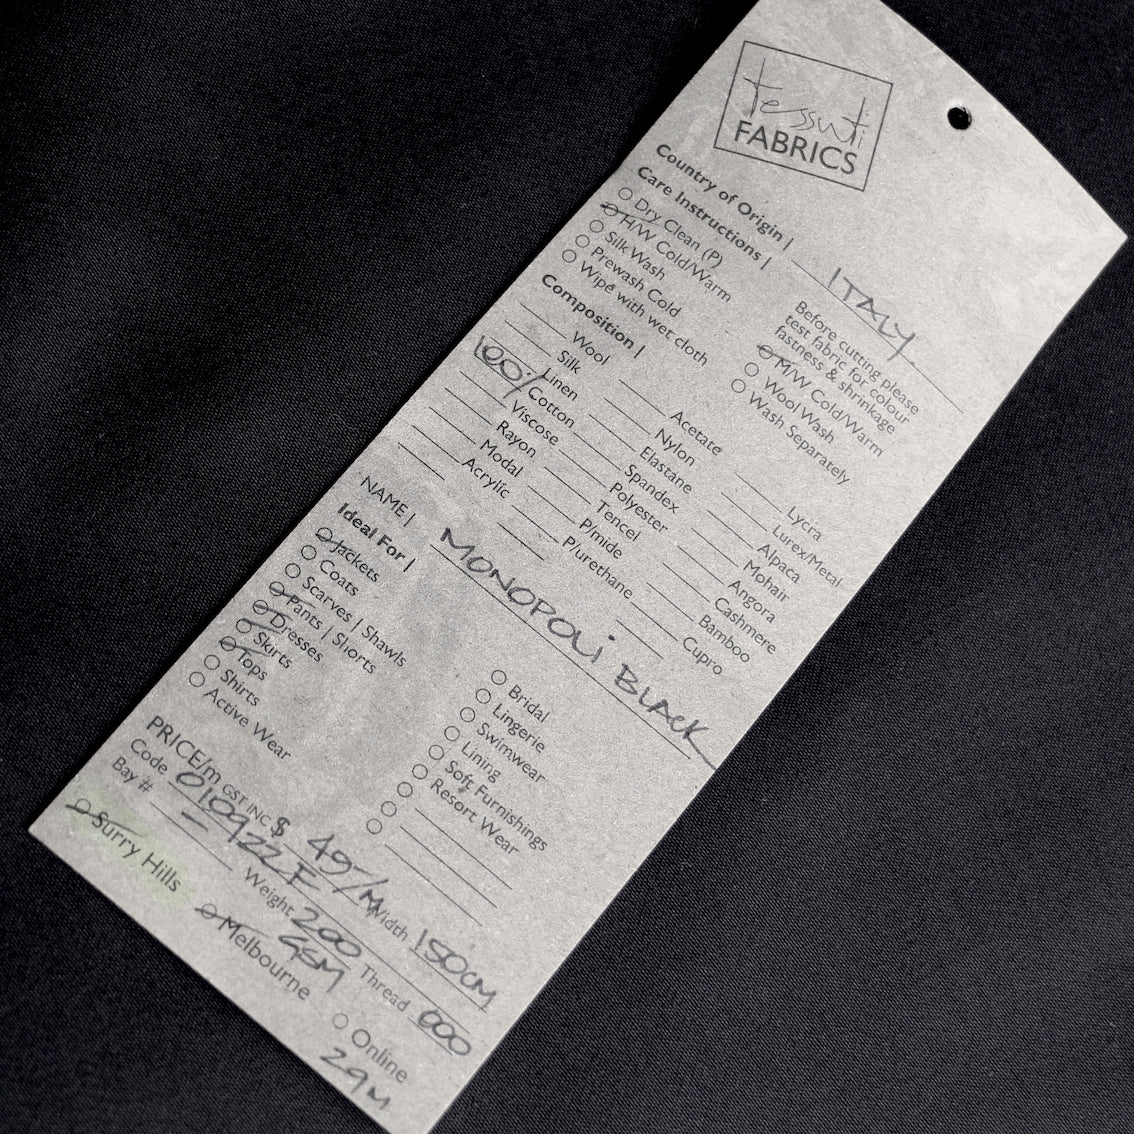 tessuti
FABRICS
Country of Origin | ITALY
Care Instructions |
Dry Clean (P)
H/W Cold/Warm
Silk Wash
Prewash Cold
Wipe with wet cloth
Before cutting please
test fabric for colour
fastness & shrinkage
M/W Cold/Warm
Wool Wash
Wash Separately
Composition |
Wool
Silk
Linen
100% Cotton
Viscose
Rayon
Modal
Acrylic
Acetate
Nylon
Elastane
Spandex
Polyester
Tencel
P/mide
P/urethane
Lycra
Lurex/Metal
Alpaca
Mohair
Angora
Cashmere
Bamboo
Cupro
NAME | MONOPOLI BLACK
Ideal For |
Jackets
Coats
Scarves | Shawls
Pants | Shorts
Dresses
Skirts
Tops
Shirts
Active Wear
Bridal
Lingerie
Swimwear
Lining
Soft Furnishings
Resort Wear
PRICE/m GST INC $ 49-/M
Code 010922F Width 150CM
Bay # Weight 200 GSM Thread 000
Surry Hills Melbourne Online
29M